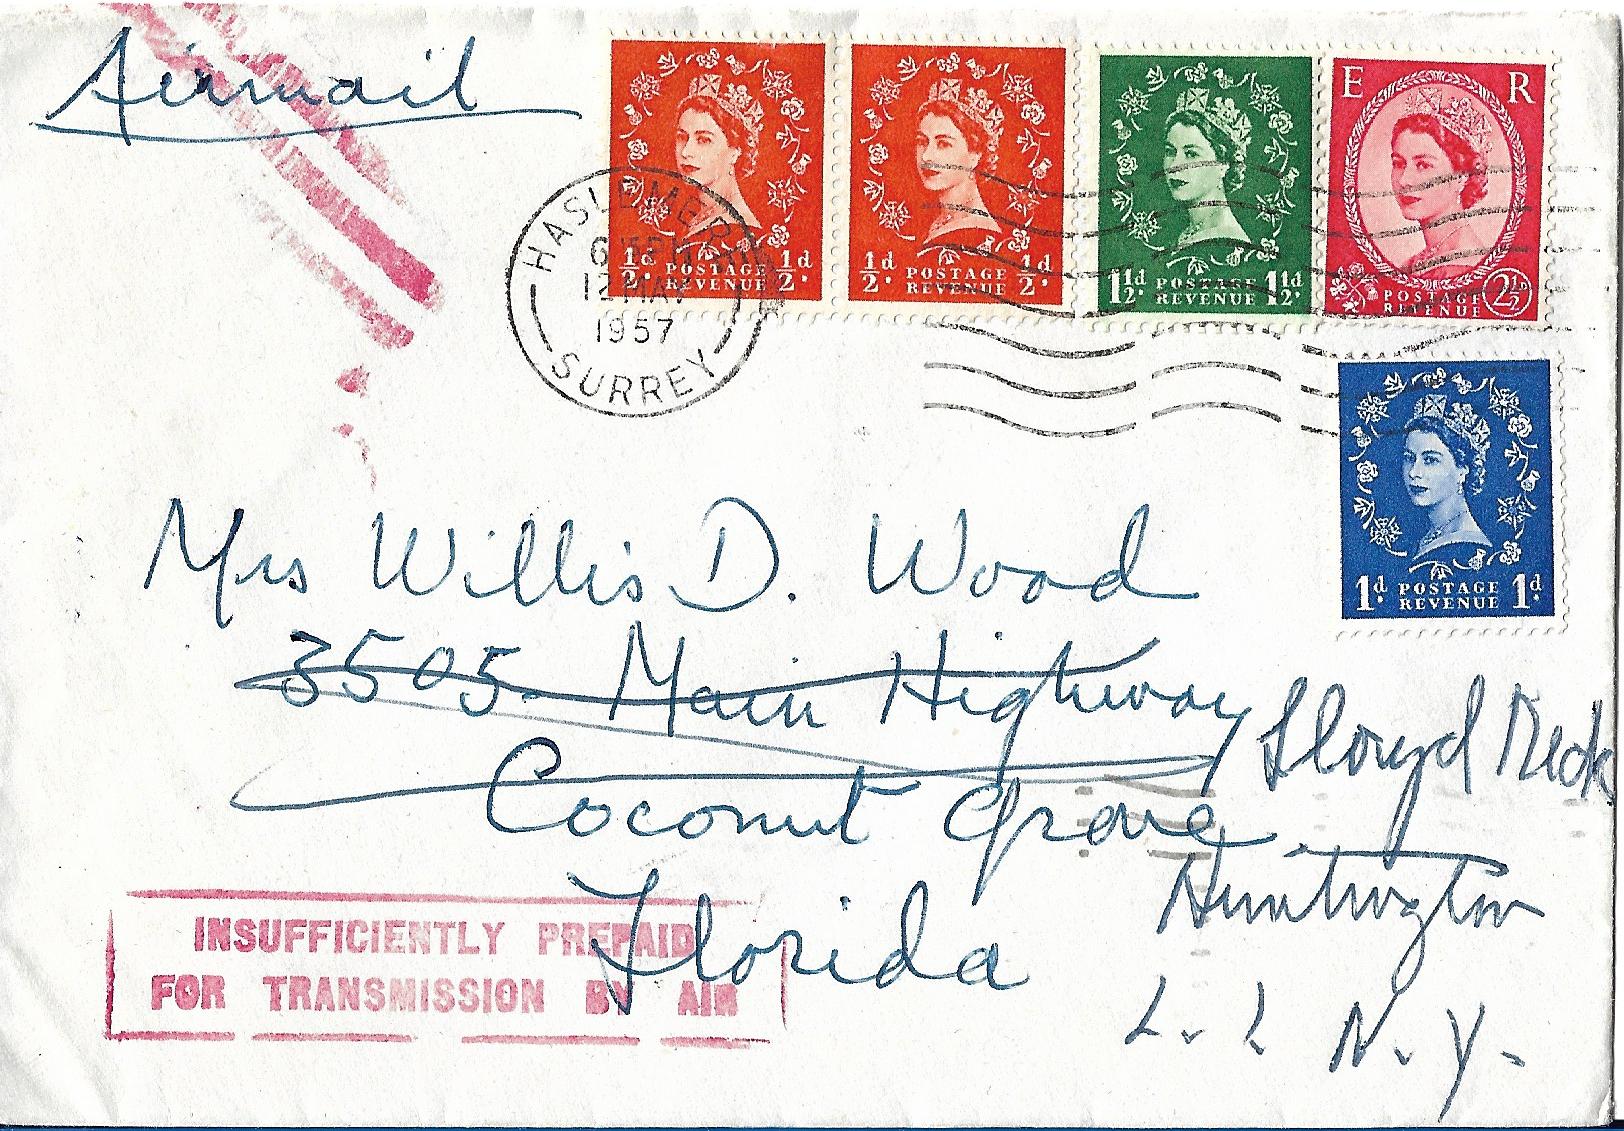 Airmail
½d POSTAGE REVENUE ½d
½d POSTAGE REVENUE ½d
1½d POSTAGE REVENUE 1½d
E R
POSTAGE REVENUE 2½d
HASLEMERE
12 MAY
1957
SURREY
1d POSTAGE REVENUE 1d
Mrs Willis D. Wood
3505 Main Highway
Coconut Grove
Florida
Lloyd
Huntington
L. I. N. Y.
INSUFFICIENTLY PREPAID
FOR TRANSMISSION BY AIR